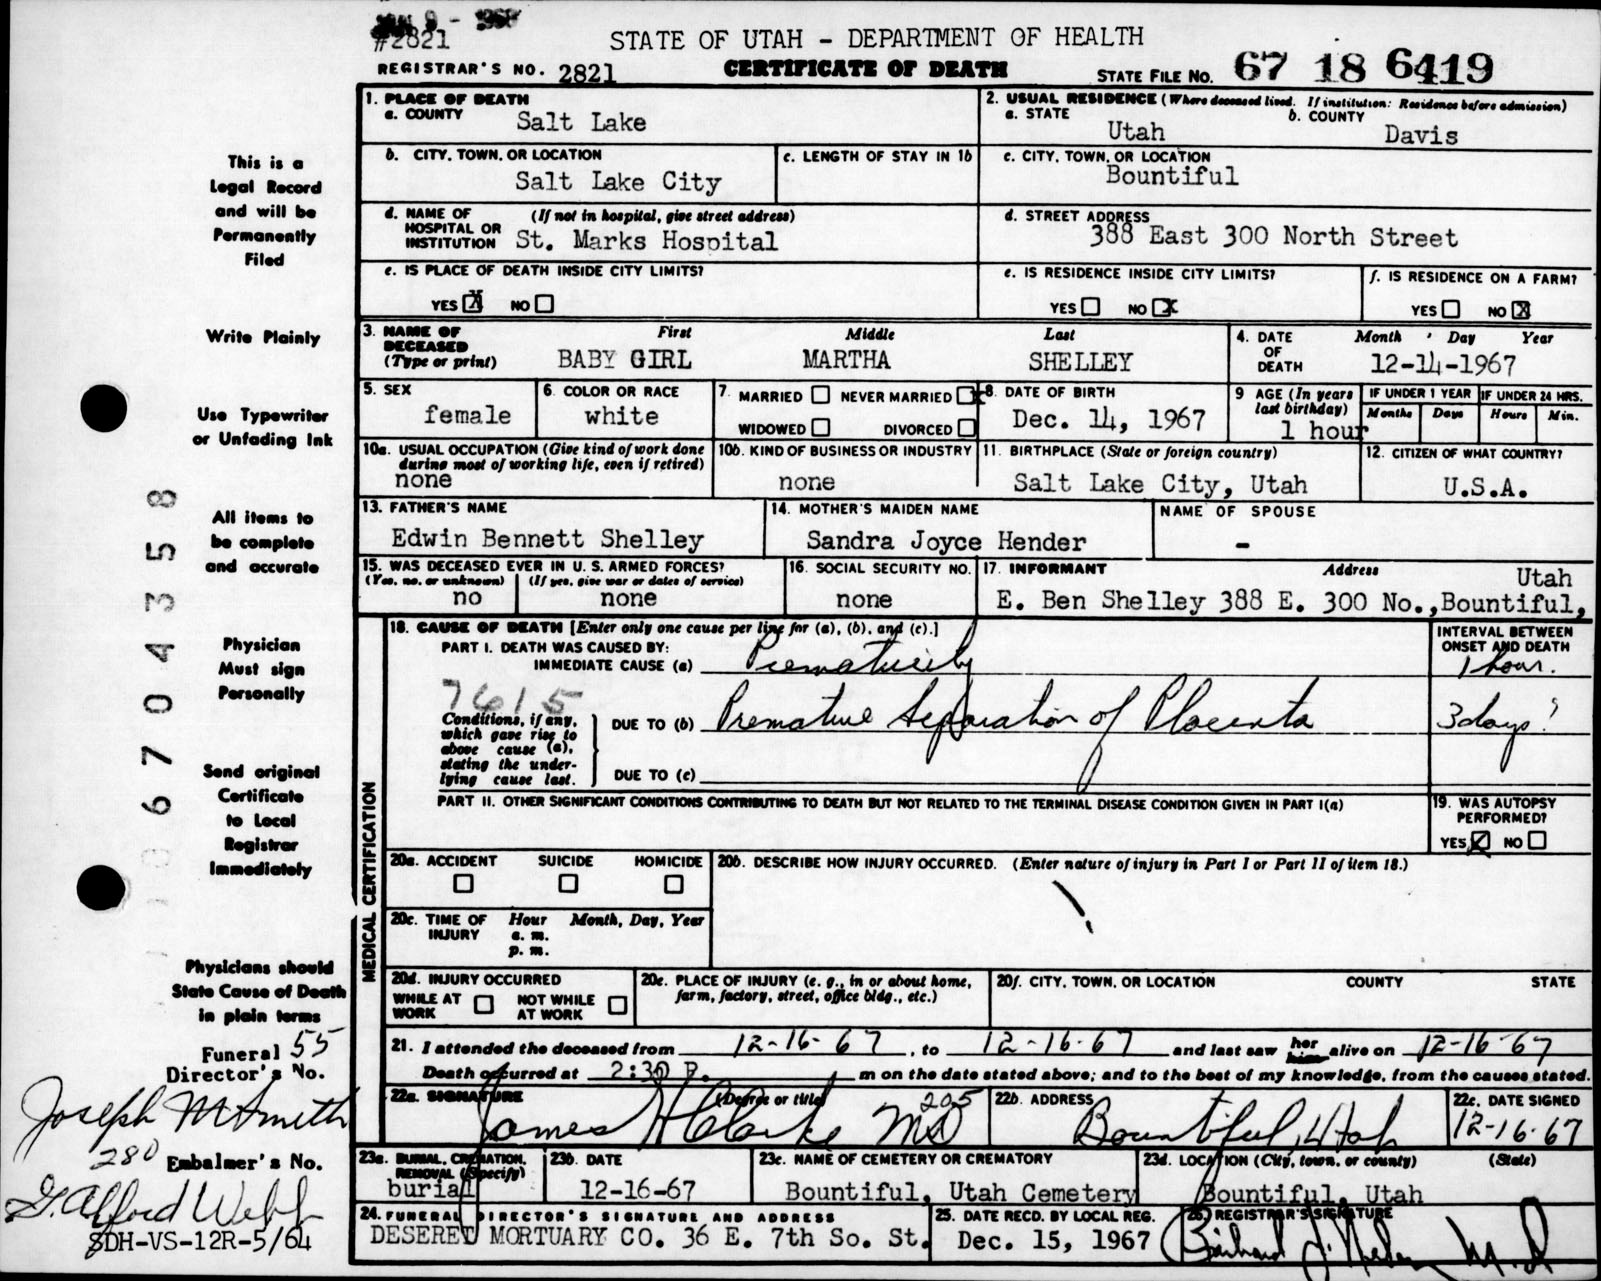 JAN 9 - 1968
#2821
STATE OF UTAH - DEPARTMENT OF HEALTH
REGISTRAR'S NO. 2821
CERTIFICATE OF DEATH
STATE FILE NO. 67 18 6419
This is a Legal Record and will be Permanently Filed
Write Plainly
Use Typewriter or Unfading Ink
All items to be complete and accurate
Physician Must sign Personally
Send original Certificate to Local Registrar Immediately
Physicians should State Cause of Death in plain terms
67 04358
1. PLACE OF DEATH
a. COUNTY Salt Lake
2. USUAL RESIDENCE (Where deceased lived. If institution: Residence before admission)
a. STATE Utah
b. COUNTY Davis
b. CITY, TOWN, OR LOCATION Salt Lake City
c. LENGTH OF STAY IN 1b
c. CITY, TOWN, OR LOCATION Bountiful
d. NAME OF HOSPITAL OR INSTITUTION (If not in hospital, give street address) St. Marks Hospital
d. STREET ADDRESS 388 East 300 North Street
e. IS PLACE OF DEATH INSIDE CITY LIMITS?
YES X NO
e. IS RESIDENCE INSIDE CITY LIMITS?
YES NO X
f. IS RESIDENCE ON A FARM?
YES NO X
3. NAME OF DECEASED (Type or print)
First Middle Last
BABY GIRL MARTHA SHELLEY
4. DATE OF DEATH Month Day Year
12-14-1967
5. SEX female
6. COLOR OR RACE white
7. MARRIED NEVER MARRIED X
WIDOWED DIVORCED
8. DATE OF BIRTH Dec. 14, 1967
9 AGE (In years last birthday) 1 hour
IF UNDER 1 YEAR Months Days
IF UNDER 24 HRS. Hours Min.
10a. USUAL OCCUPATION (Give kind of work done during most of working life, even if retired) none
10b. KIND OF BUSINESS OR INDUSTRY none
11. BIRTHPLACE (State or foreign country) Salt Lake City, Utah
12. CITIZEN OF WHAT COUNTRY? U.S.A.
13. FATHER'S NAME Edwin Bennett Shelley
14. MOTHER'S MAIDEN NAME Sandra Joyce Hender
NAME OF SPOUSE -
15. WAS DECEASED EVER IN U. S. ARMED FORCES?
(Yes, no, or unknown) no
(If yes, give war or dates of service) none
16. SOCIAL SECURITY NO. none
17. INFORMANT Address
E. Ben Shelley 388 E. 300 No., Bountiful, Utah
MEDICAL CERTIFICATION
18. CAUSE OF DEATH [Enter only one cause per line for (a), (b), and (c).]
PART I. DEATH WAS CAUSED BY:
IMMEDIATE CAUSE (a) Prematurity
INTERVAL BETWEEN ONSET AND DEATH
1 hour.
7615
Conditions, if any, which gave rise to above cause (a), stating the underlying cause last.
DUE TO (b) Premature Separation of Placenta
3 days?
DUE TO (c)
PART II. OTHER SIGNIFICANT CONDITIONS CONTRIBUTING TO DEATH BUT NOT RELATED TO THE TERMINAL DISEASE CONDITION GIVEN IN PART I(a)
19. WAS AUTOPSY PERFORMED?
YES X NO
20a. ACCIDENT SUICIDE HOMICIDE
20b. DESCRIBE HOW INJURY OCCURRED. (Enter nature of injury in Part I or Part II of item 18.)
20c. TIME OF INJURY Hour a. m. p. m. Month, Day, Year
20d. INJURY OCCURRED
WHILE AT WORK NOT WHILE AT WORK
20e. PLACE OF INJURY (e. g., in or about home, farm, factory, street, office bldg., etc.)
20f. CITY, TOWN, OR LOCATION COUNTY STATE
21. I attended the deceased from 12-16-67, to 12-16-67 and last saw her him alive on 12-16-67
Death occurred at 2:30 P. m on the date stated above; and to the best of my knowledge, from the causes stated.
22a. SIGNATURE (Degree or title) 205
James H Clarke MD
22b. ADDRESS Bountiful, Utah
22c. DATE SIGNED 12-16-67
Funeral Director's No. 55
Joseph M Smith
280 Embalmer's No.
G. Alford Webb
SDH-VS-12R-5/64
23a. BURIAL, CREMATION, REMOVAL (Specify) burial
23b. DATE 12-16-67
23c. NAME OF CEMETERY OR CREMATORY Bountiful, Utah Cemetery
23d. LOCATION (City, town, or county) (State) Bountiful, Utah
24. FUNERAL DIRECTOR'S SIGNATURE AND ADDRESS
DESERET MORTUARY CO. 36 E. 7th So. St.
25. DATE RECD. BY LOCAL REG. Dec. 15, 1967
26. REGISTRAR'S SIGNATURE